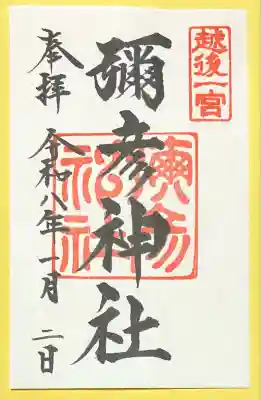 越後一宮
奉拝
彌彦神社
令和八年一月二日